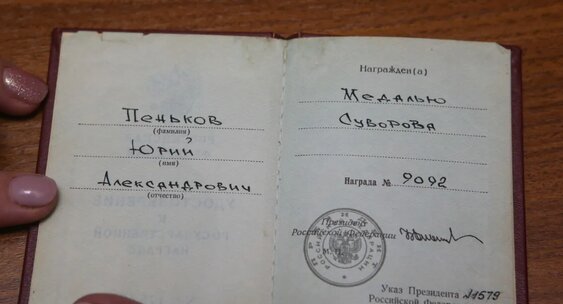 Пеньков
(фамилия)
Юрий
(имя)
Александрович
(отчество)
Награжден(а)
Медалью
Суворова
Награда № 9092
Президент
Российской Федерации
Указ Президента №1579
Российской Феде